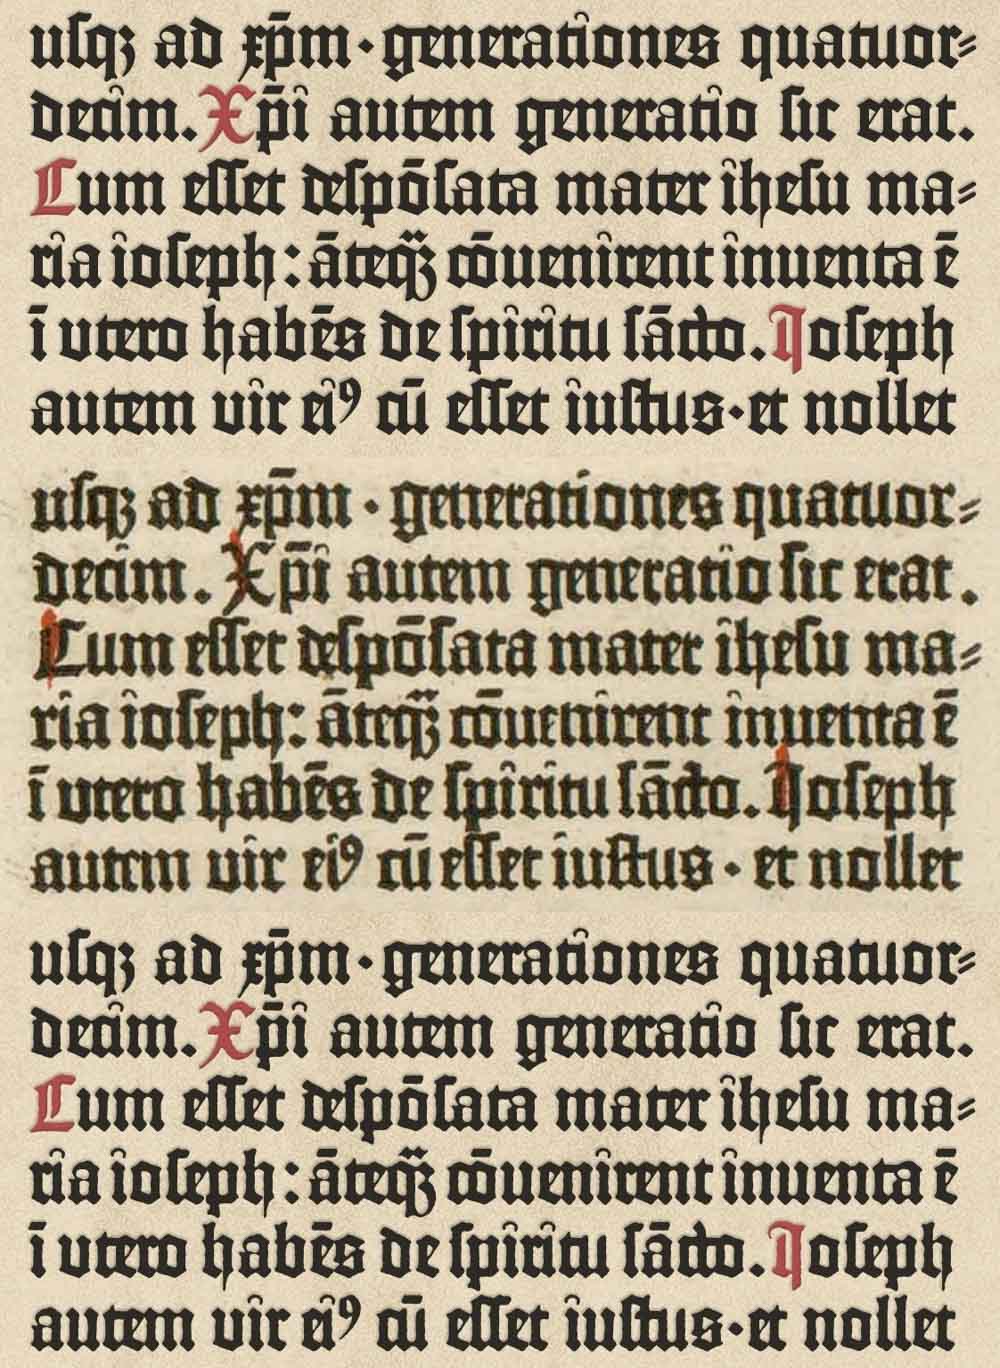 uſqꝫ ad xp̄m · generationes quatuor⸗
decim. Xp̄i autem generatio ſic erat.
Cum eſſet deſpōſata mater iheſu ma⸗
ria ioſeph: āteq̄ꝫ cōuenirent inuenta ē
ī utero habēs de ſpiritu ſācto. Ioſeph
autem uir eiꝰ cū eſſet iuſtus · et nollet
uſqꝫ ad xp̄m · generationes quatuor⸗
decim. Xp̄i autem generatio ſic erat.
Cum eſſet deſpōſata mater iheſu ma⸗
ria ioſeph: āteq̄ꝫ cōuenirent inuenta ē
ī utero habēs de ſpiritu ſācto. Ioſeph
autem uir eiꝰ cū eſſet iuſtus · et nollet
uſqꝫ ad xp̄m · generationes quatuor⸗
decim. Xp̄i autem generatio ſic erat.
Cum eſſet deſpōſata mater iheſu ma⸗
ria ioſeph: āteq̄ꝫ cōuenirent inuenta ē
ī utero habēs de ſpiritu ſācto. Ioſeph
autem uir eiꝰ cū eſſet iuſtus · et nollet